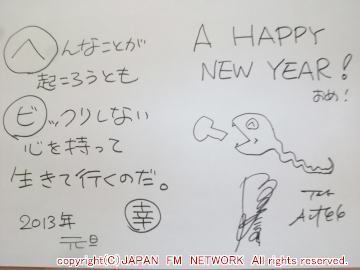 へんなことが
起ころうとも
ビックリしない
心を持って
生きて行くのだ。
2013年
元旦
幸
A HAPPY
NEW YEAR!
おめ!
copyright(C)JAPAN FM NETWORK All rights reserved.